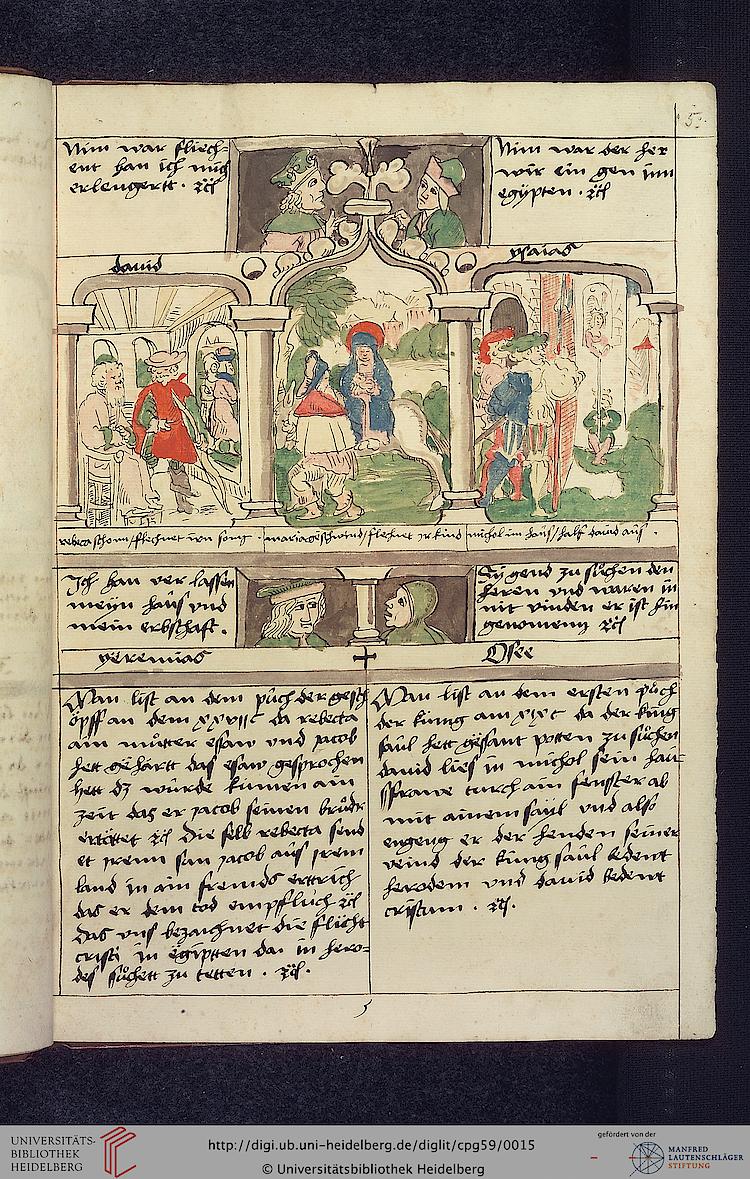 5.
Nim war fliech-
ent han ich mich
erlengertt . rc
Nim war der her
wir ein gen inn
egypten . rc
dauid
ysaias
rebeca schonn / flechnet irn song .
maria geschwind / flechnet ir kind
michol im haus / half dauid aus .
Ich han ver lassen
meyn haus vnd
mein erbschaft .
Sy gend zu suchen den
heren vnd waren in
nit vinden er ist hin
genomenn rc
yeremias
Osee
Man list an dem puch der gesch
öpff an dem xxvii c da rebecta
ain muotter esaw vnd jacob
hett gehört das esaw gesprochen
hett dz wurde kumen ain
zeit das er jacob seinen bruder
ertöttet rc Die selb rebecta send
et irenn sun jacob aus irem
land in ain fremds ertrich
das er dem tod empfluch rc
das vns bezaichnet die flücht
cristi in egiptten da in hero-
des suchett zu tetten . rc .
Man list an dem ersten puch
der kung am xix c da der kung
saul hett gesant potten zu suchen
dauid lies in michol sein hau
sfrawe durch ain fenster ab
mit ainem sayl vnd also
engeng er der henden seiner
veind der kung saul bedeut
herodem vnd dauid bedeut
cristum . rc .
5
UNIVERSITÄTS-
BIBLIOTHEK
HEIDELBERG
http://digi.ub.uni-heidelberg.de/diglit/cpg59/0015
© Universitätsbibliothek Heidelberg
gefördert von der
MANFRED
LAUTENSCHLÄGER
STIFTUNG